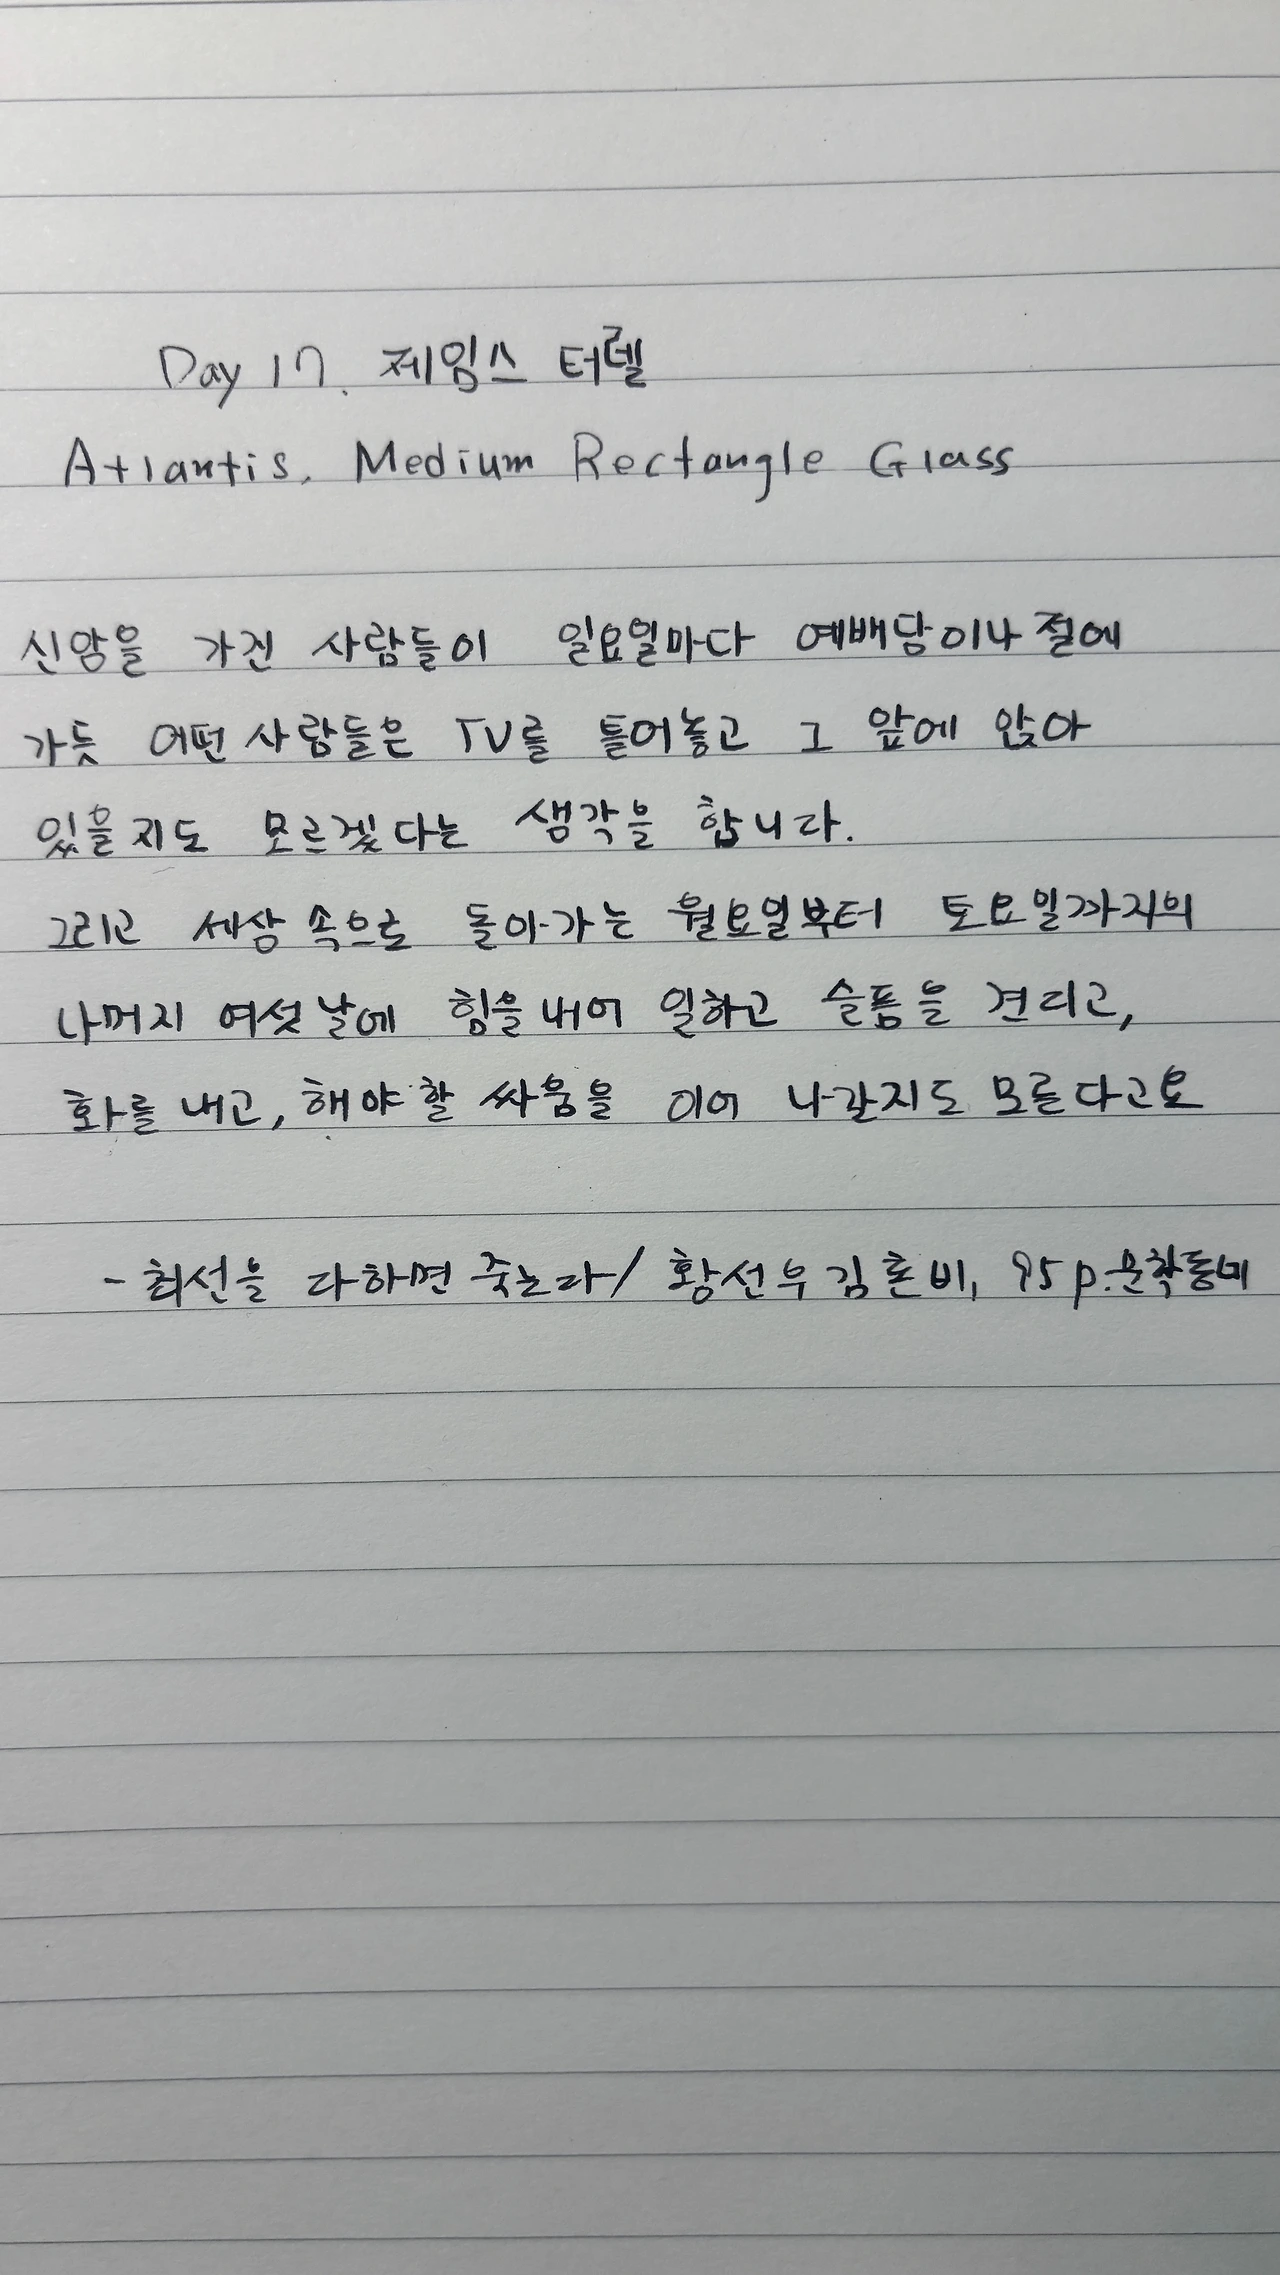 Day 17. 제임스 터렐
Atlantis, Medium Rectangle Glass
신앙을 가진 사람들이 일요일마다 예배당이나 절에
가듯 어떤 사람들은 TV를 틀어놓고 그 앞에 앉아
있을지도 모르겠다는 생각을 합니다.
그리고 세상 속으로 돌아가는 월요일부터 토요일까지의
나머지 여섯날에 힘을 내어 일하고 슬픔을 견디고,
화를 내고, 해야 할 싸움을 이어 나갈지도 모른다고요
- 최선을 다하면 죽는다/ 황선우 김혼비, 95p.문학동네